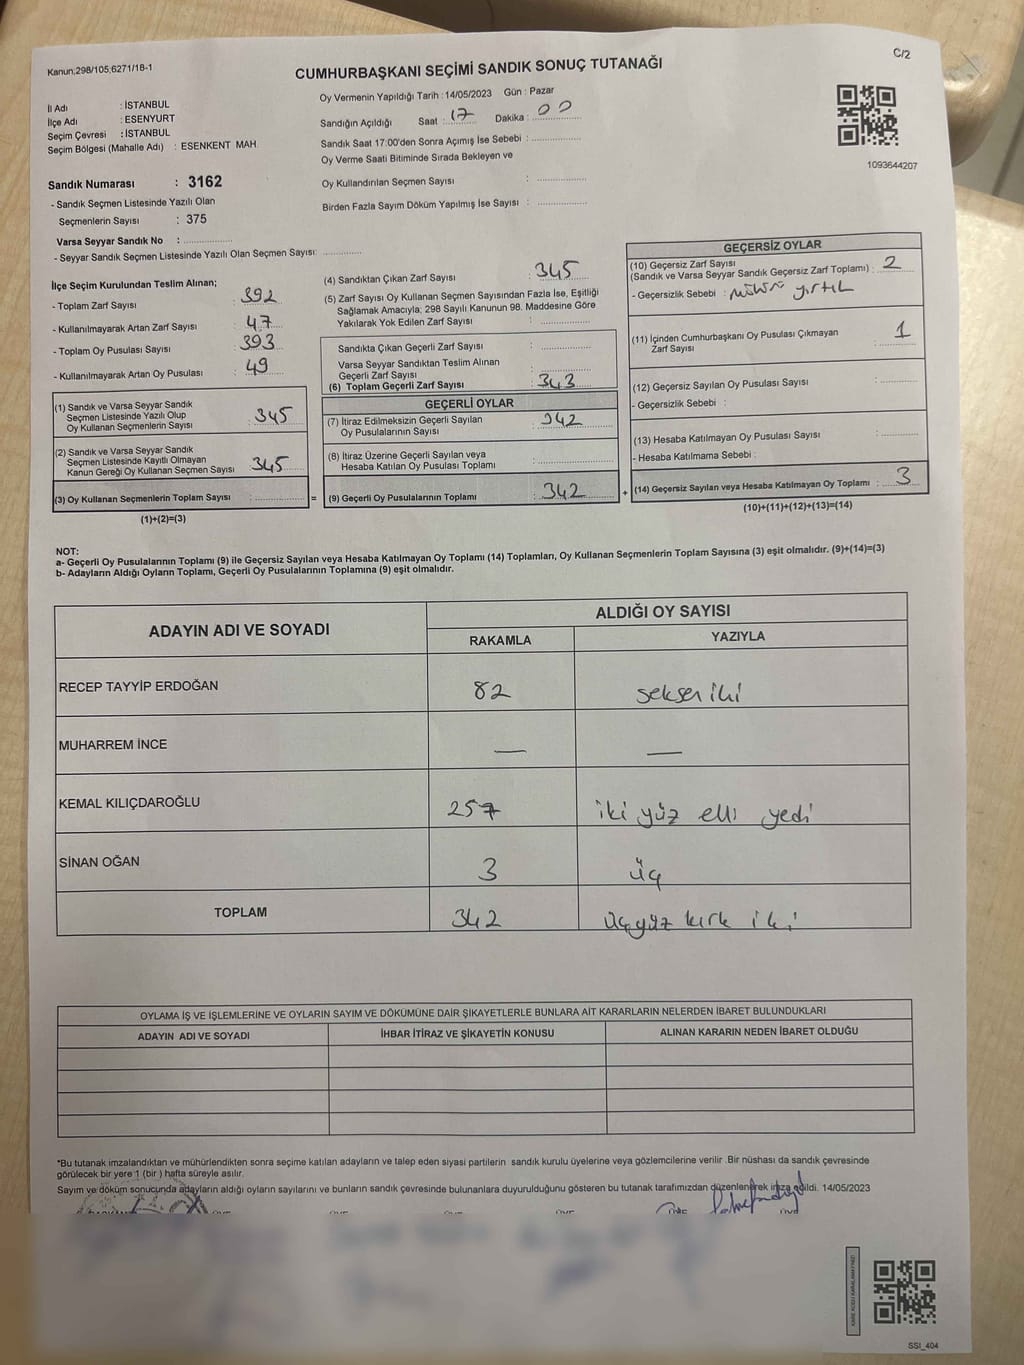 Kanun;298/105;6271/18-1
C/2
CUMHURBAŞKANI SEÇİMİ SANDIK SONUÇ TUTANAĞI
İl Adı : İSTANBUL
İlçe Adı : ESENYURT
Seçim Çevresi : İSTANBUL
Seçim Bölgesi (Mahalle Adı) : ESENKENT MAH.
Sandık Numarası : 3162
- Sandık Seçmen Listesinde Yazılı Olan
Seçmenlerin Sayısı : 375
Varsa Seyyar Sandık No :
- Seyyar Sandık Seçmen Listesinde Yazılı Olan Seçmen Sayısı:
Oy Vermenin Yapıldığı Tarih : 14/05/2023 Gün : Pazar
Sandığın Açıldığı Saat : 17 Dakika : 00
Sandık Saat 17:00'den Sonra Açımış İse Sebebi :
Oy Verme Saati Bitiminde Sırada Bekleyen ve
Oy Kullandırılan Seçmen Sayısı :
Birden Fazla Sayım Döküm Yapılmış İse Sayısı :
1093644207
İlçe Seçim Kurulundan Teslim Alınan;
- Toplam Zarf Sayısı : 392
- Kullanılmayarak Artan Zarf Sayısı : 47
- Toplam Oy Pusulası Sayısı : 393
- Kullanılmayarak Artan Oy Pusulası : 49
(1) Sandık ve Varsa Seyyar Sandık
Seçmen Listesinde Yazılı Olup
Oy Kullanan Seçmenlerin Sayısı : 345
(2) Sandık ve Varsa Seyyar Sandık
Seçmen Listesinde Kayıtlı Olmayan
Kanun Gereği Oy Kullanan Seçmen Sayısı : 345
(3) Oy Kullanan Seçmenlerin Toplam Sayısı :
(1)+(2)=(3)
=
(4) Sandıktan Çıkan Zarf Sayısı : 345
(5) Zarf Sayısı Oy Kullanan Seçmen Sayısından Fazla İse, Eşitliği
Sağlamak Amacıyla; 298 Sayılı Kanunun 98. Maddesine Göre
Yakılarak Yok Edilen Zarf Sayısı :
Sandıkta Çıkan Geçerli Zarf Sayısı :
Varsa Seyyar Sandıktan Teslim Alınan
Geçerli Zarf Sayısı :
(6) Toplam Geçerli Zarf Sayısı : 343
GEÇERLİ OYLAR
(7) İtiraz Edilmeksizin Geçerli Sayılan
Oy Pusulalarının Sayısı : 342
(8) İtiraz Üzerine Geçerli Sayılan veya
Hesaba Katılan Oy Pusulası Toplamı :
(9) Geçerli Oy Pusulalarının Toplamı : 342
+
GEÇERSİZ OYLAR
(10) Geçersiz Zarf Sayısı
(Sandık ve Varsa Seyyar Sandık Geçersiz Zarf Toplamı) : 2
- Geçersizlik Sebebi : yırtık
(11) İçinden Cumhurbaşkanı Oy Pusulası Çıkmayan
Zarf Sayısı : 1
(12) Geçersiz Sayılan Oy Pusulası Sayısı :
- Geçersizlik Sebebi :
(13) Hesaba Katılmayan Oy Pusulası Sayısı :
- Hesaba Katılmama Sebebi :
(14) Geçersiz Sayılan veya Hesaba Katılmayan Oy Toplamı : 3
(10)+(11)+(12)+(13)=(14)
NOT:
a- Geçerli Oy Pusulalarının Toplamı (9) ile Geçersiz Sayılan veya Hesaba Katılmayan Oy Toplamı (14) Toplamları, Oy Kullanan Seçmenlerin Toplam Sayısına (3) eşit olmalıdır. (9)+(14)=(3)
b- Adayların Aldığı Oyların Toplamı, Geçerli Oy Pusulalarının Toplamına (9) eşit olmalıdır.
ADAYIN ADI VE SOYADI
ALDIĞI OY SAYISI
RAKAMLA YAZIYLA
RECEP TAYYİP ERDOĞAN 82 seksen iki
MUHARREM İNCE — —
KEMAL KILIÇDAROĞLU 257 iki yüz elli yedi
SİNAN OĞAN 3 üç
TOPLAM 342 üçyüz kırk iki
OYLAMA İŞ VE İŞLEMLERİNE VE OYLARIN SAYIM VE DÖKÜMÜNE DAİR ŞİKAYETLERLE BUNLARA AİT KARARLARIN NELERDEN İBARET BULUNDUKLARI
ADAYIN ADI VE SOYADI İHBAR İTİRAZ VE ŞİKAYETİN KONUSU ALINAN KARARIN NEDEN İBARET OLDUĞU
*Bu tutanak imzalandıktan ve mühürlendikten sonra seçime katılan adayların ve talep eden siyasi partilerin sandık kurulu üyelerine veya gözlemcilerine verilir .Bir nüshası da sandık çevresinde
görülecek bir yere 1 (bir ) hafta süreyle asılır.
Sayım ve döküm sonucunda adayların aldığı oyların sayılarını ve bunların sandık çevresinde bulunanlara duyurulduğunu gösteren bu tutanak tarafımızdan düzenlenerek imza edildi. 14/05/2023
SSI_404